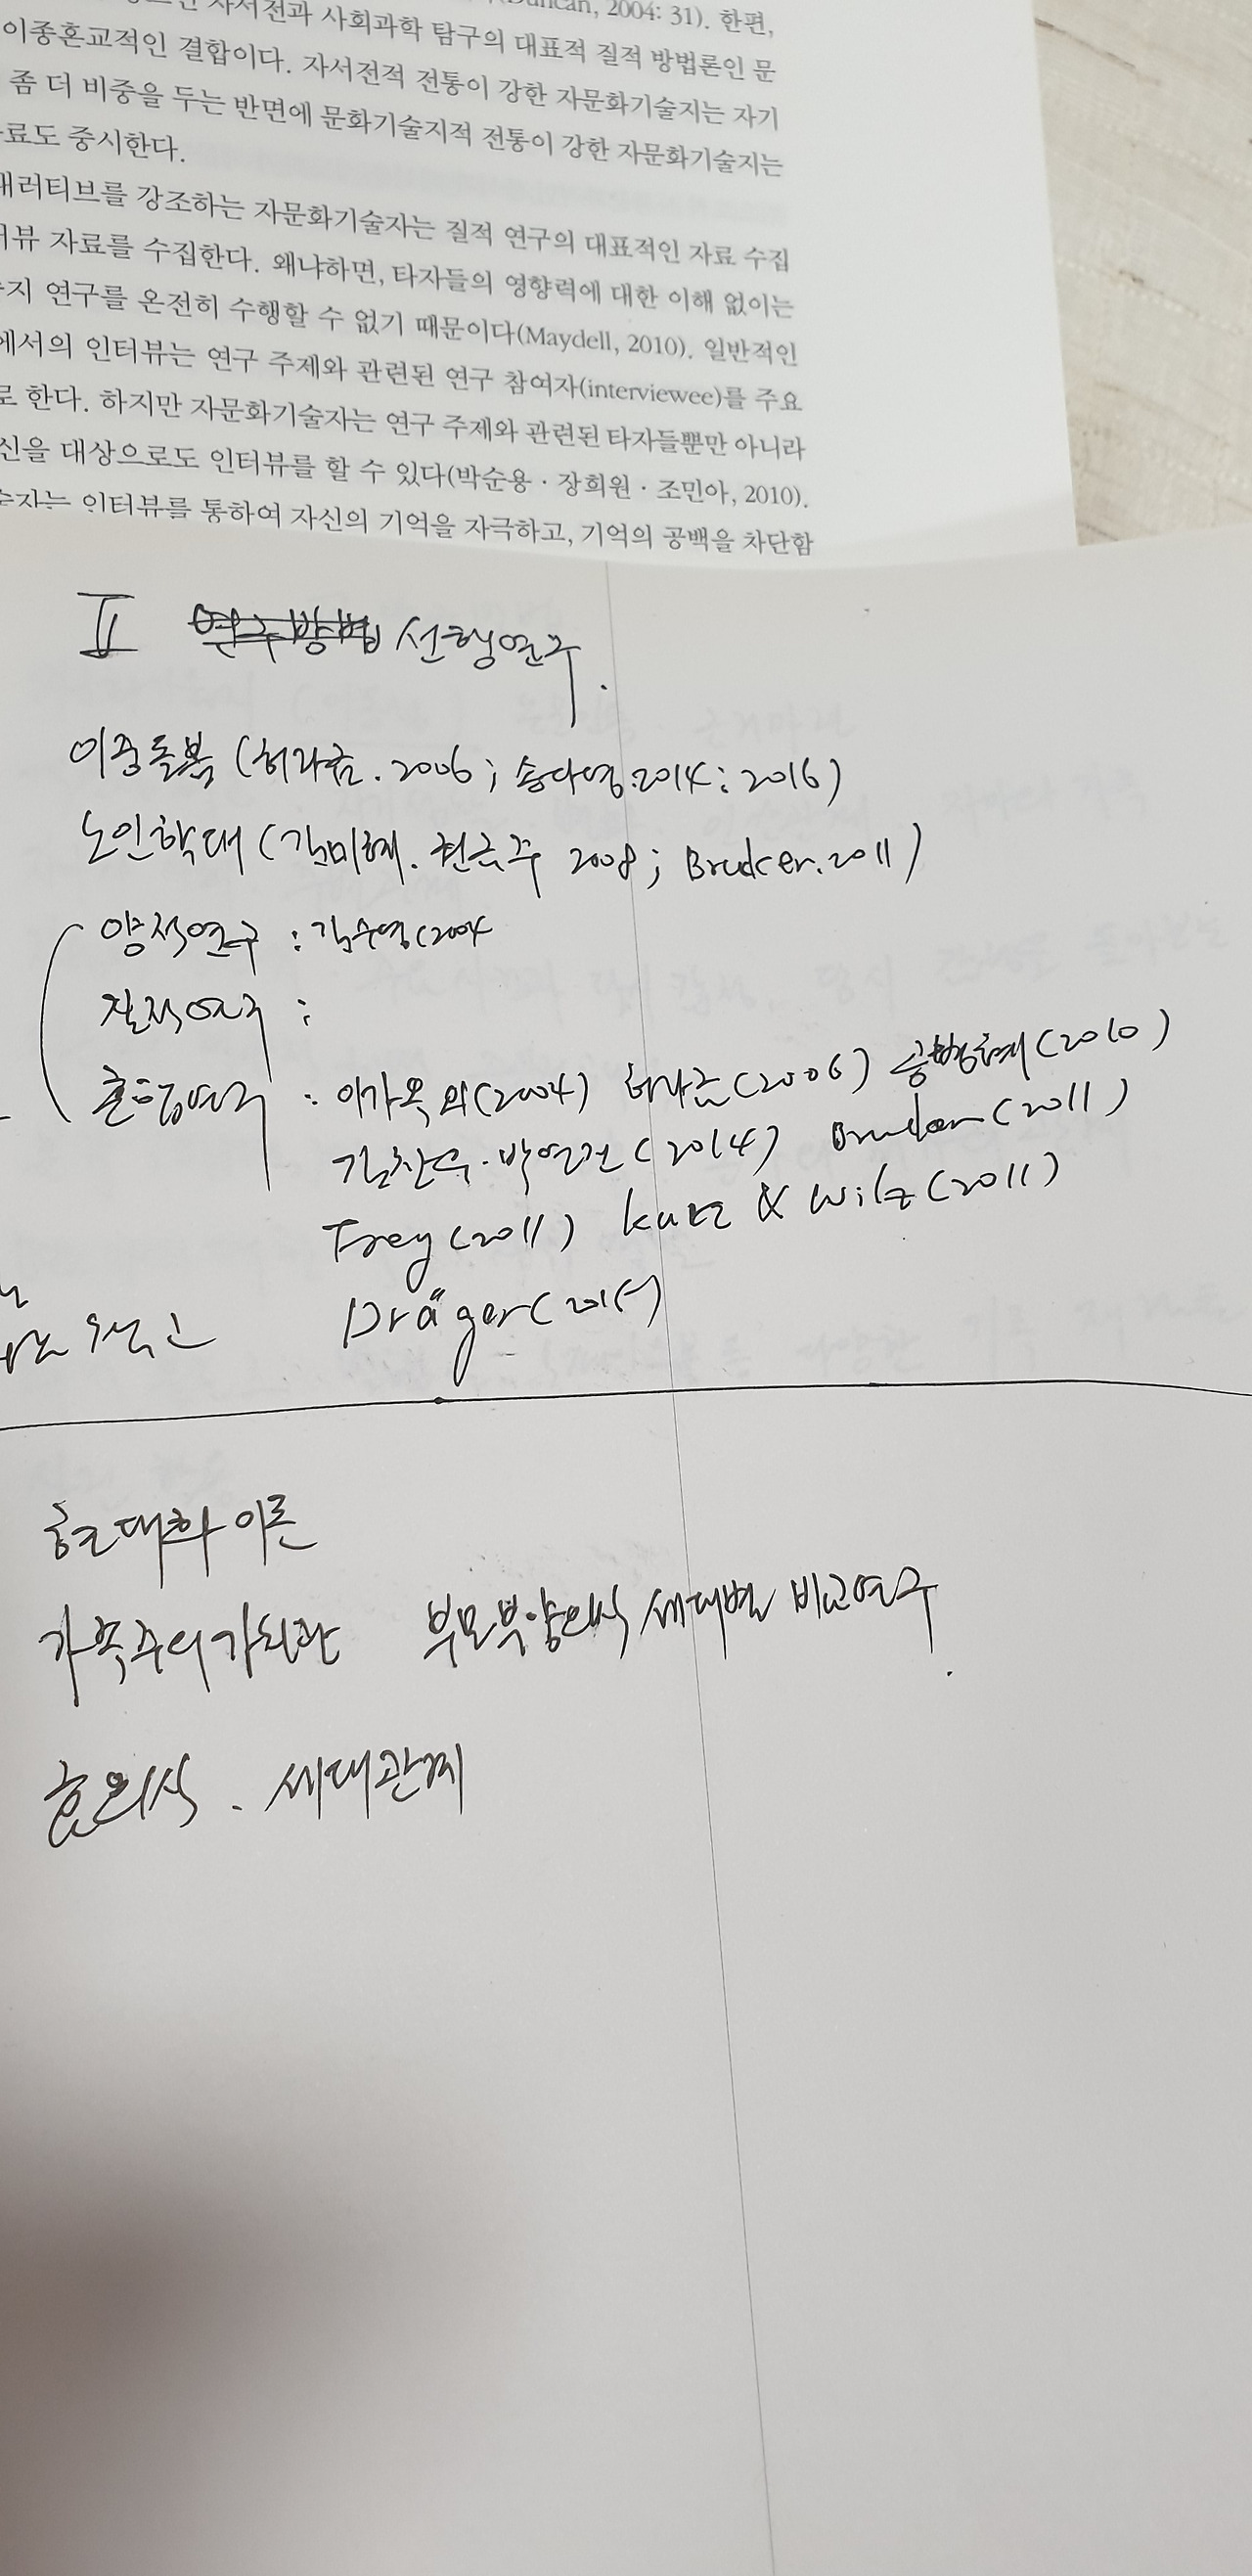 자서전과 사회과학 탐구의 대표적 질적 방법론인 문
(Duncan, 2004: 31). 한편,
이종혼교적인 결합이다. 자서전적 전통이 강한 자문화기술지는 자기
좀 더 비중을 두는 반면에 문화기술지적 전통이 강한 자문화기술지는
료도 중시한다.
내러티브를 강조하는 자문화기술자는 질적 연구의 대표적인 자료 수집
터뷰 자료를 수집한다. 왜냐하면, 타자들의 영향력에 대한 이해 없이는
지 연구를 온전히 수행할 수 없기 때문이다(Maydell, 2010). 일반적인
에서의 인터뷰는 연구 주제와 관련된 연구 참여자(interviewee)를 주요
로 한다. 하지만 자문화기술자는 연구 주제와 관련된 타자들뿐만 아니라
신을 대상으로도 인터뷰를 할 수 있다(박순용 · 장희원 · 조민아, 2010).
술자는 인터뷰를 통하여 자신의 기억을 자극하고, 기억의 공백을 차단함
Ⅱ 연구방법 선행연구.
이중돌봄 (허라금. 2006; 송다영.2014: 2016)
노인학대 (김미혜. 권금주 2008; Brucker.2011)
양적연구 : 김수영(2004
질적연구 :
혼합연구 : 이가옥 외(2004) 허라금(2006) 공병혜(2010)
김찬우·박연진(2014) (2011)
Frey(2011) Kurz & Wilz(2011)
Dräger(2015)
근대화 이론
가족주의 가치관 부모부양의식 세대별 비교연구.
효의식. 세대관계